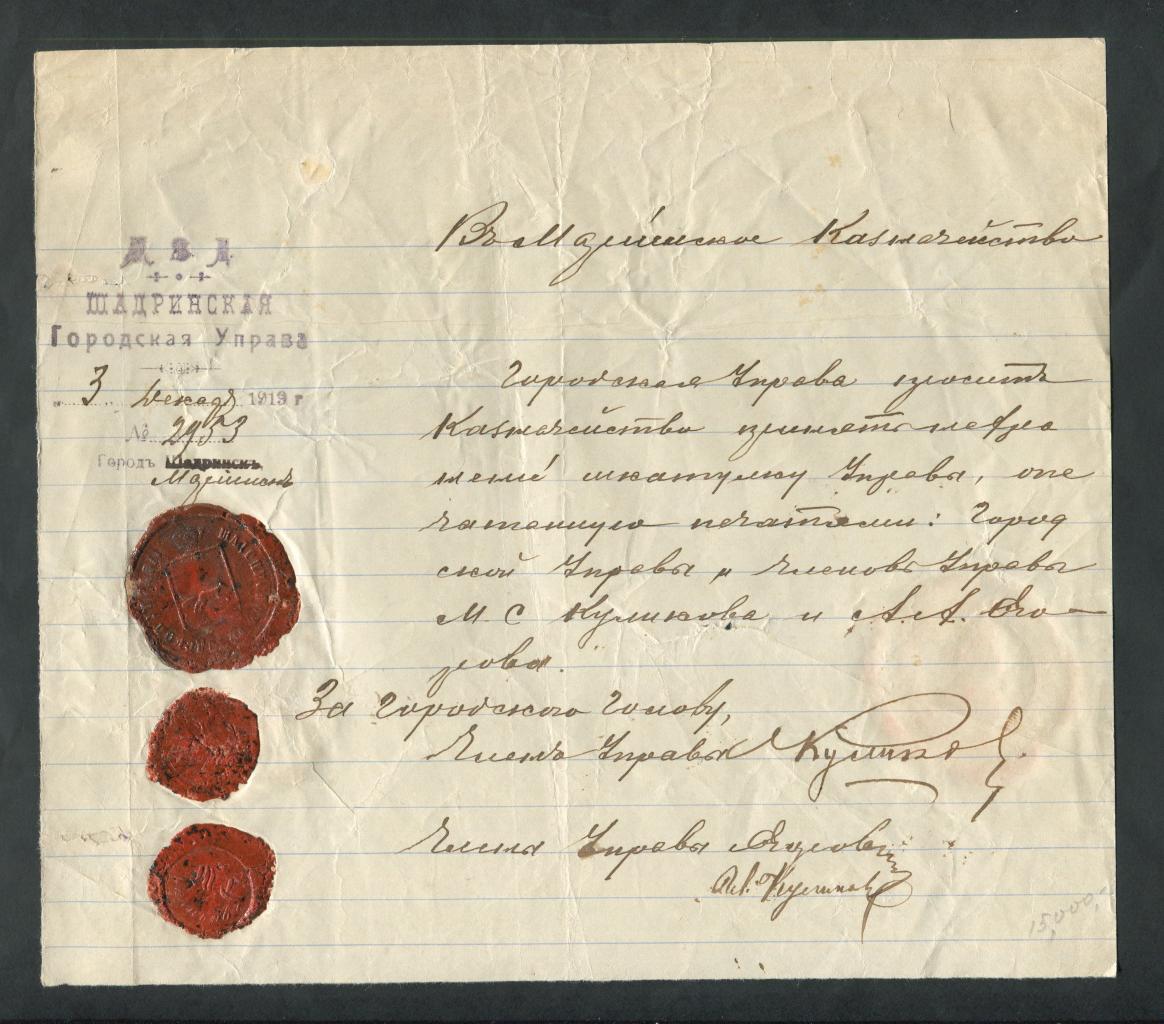 М В Д
ШАДРИНСКАЯ
Городская Управа
"3" Декаб 1919 г
№ 2953
Городъ Шадринскъ
Въ Казначейство
Городская Управа проситъ
Казначейство принять на хра
неніе шкатулку Управы, опе
чатанную печатями: Город
ской Управы и Членовъ Управы
М. С Куликова и А. А. Его-
рова.
За Городского Голову,
Членъ Управы Куликов
Члена Управы Егоров
Куликов
15,000